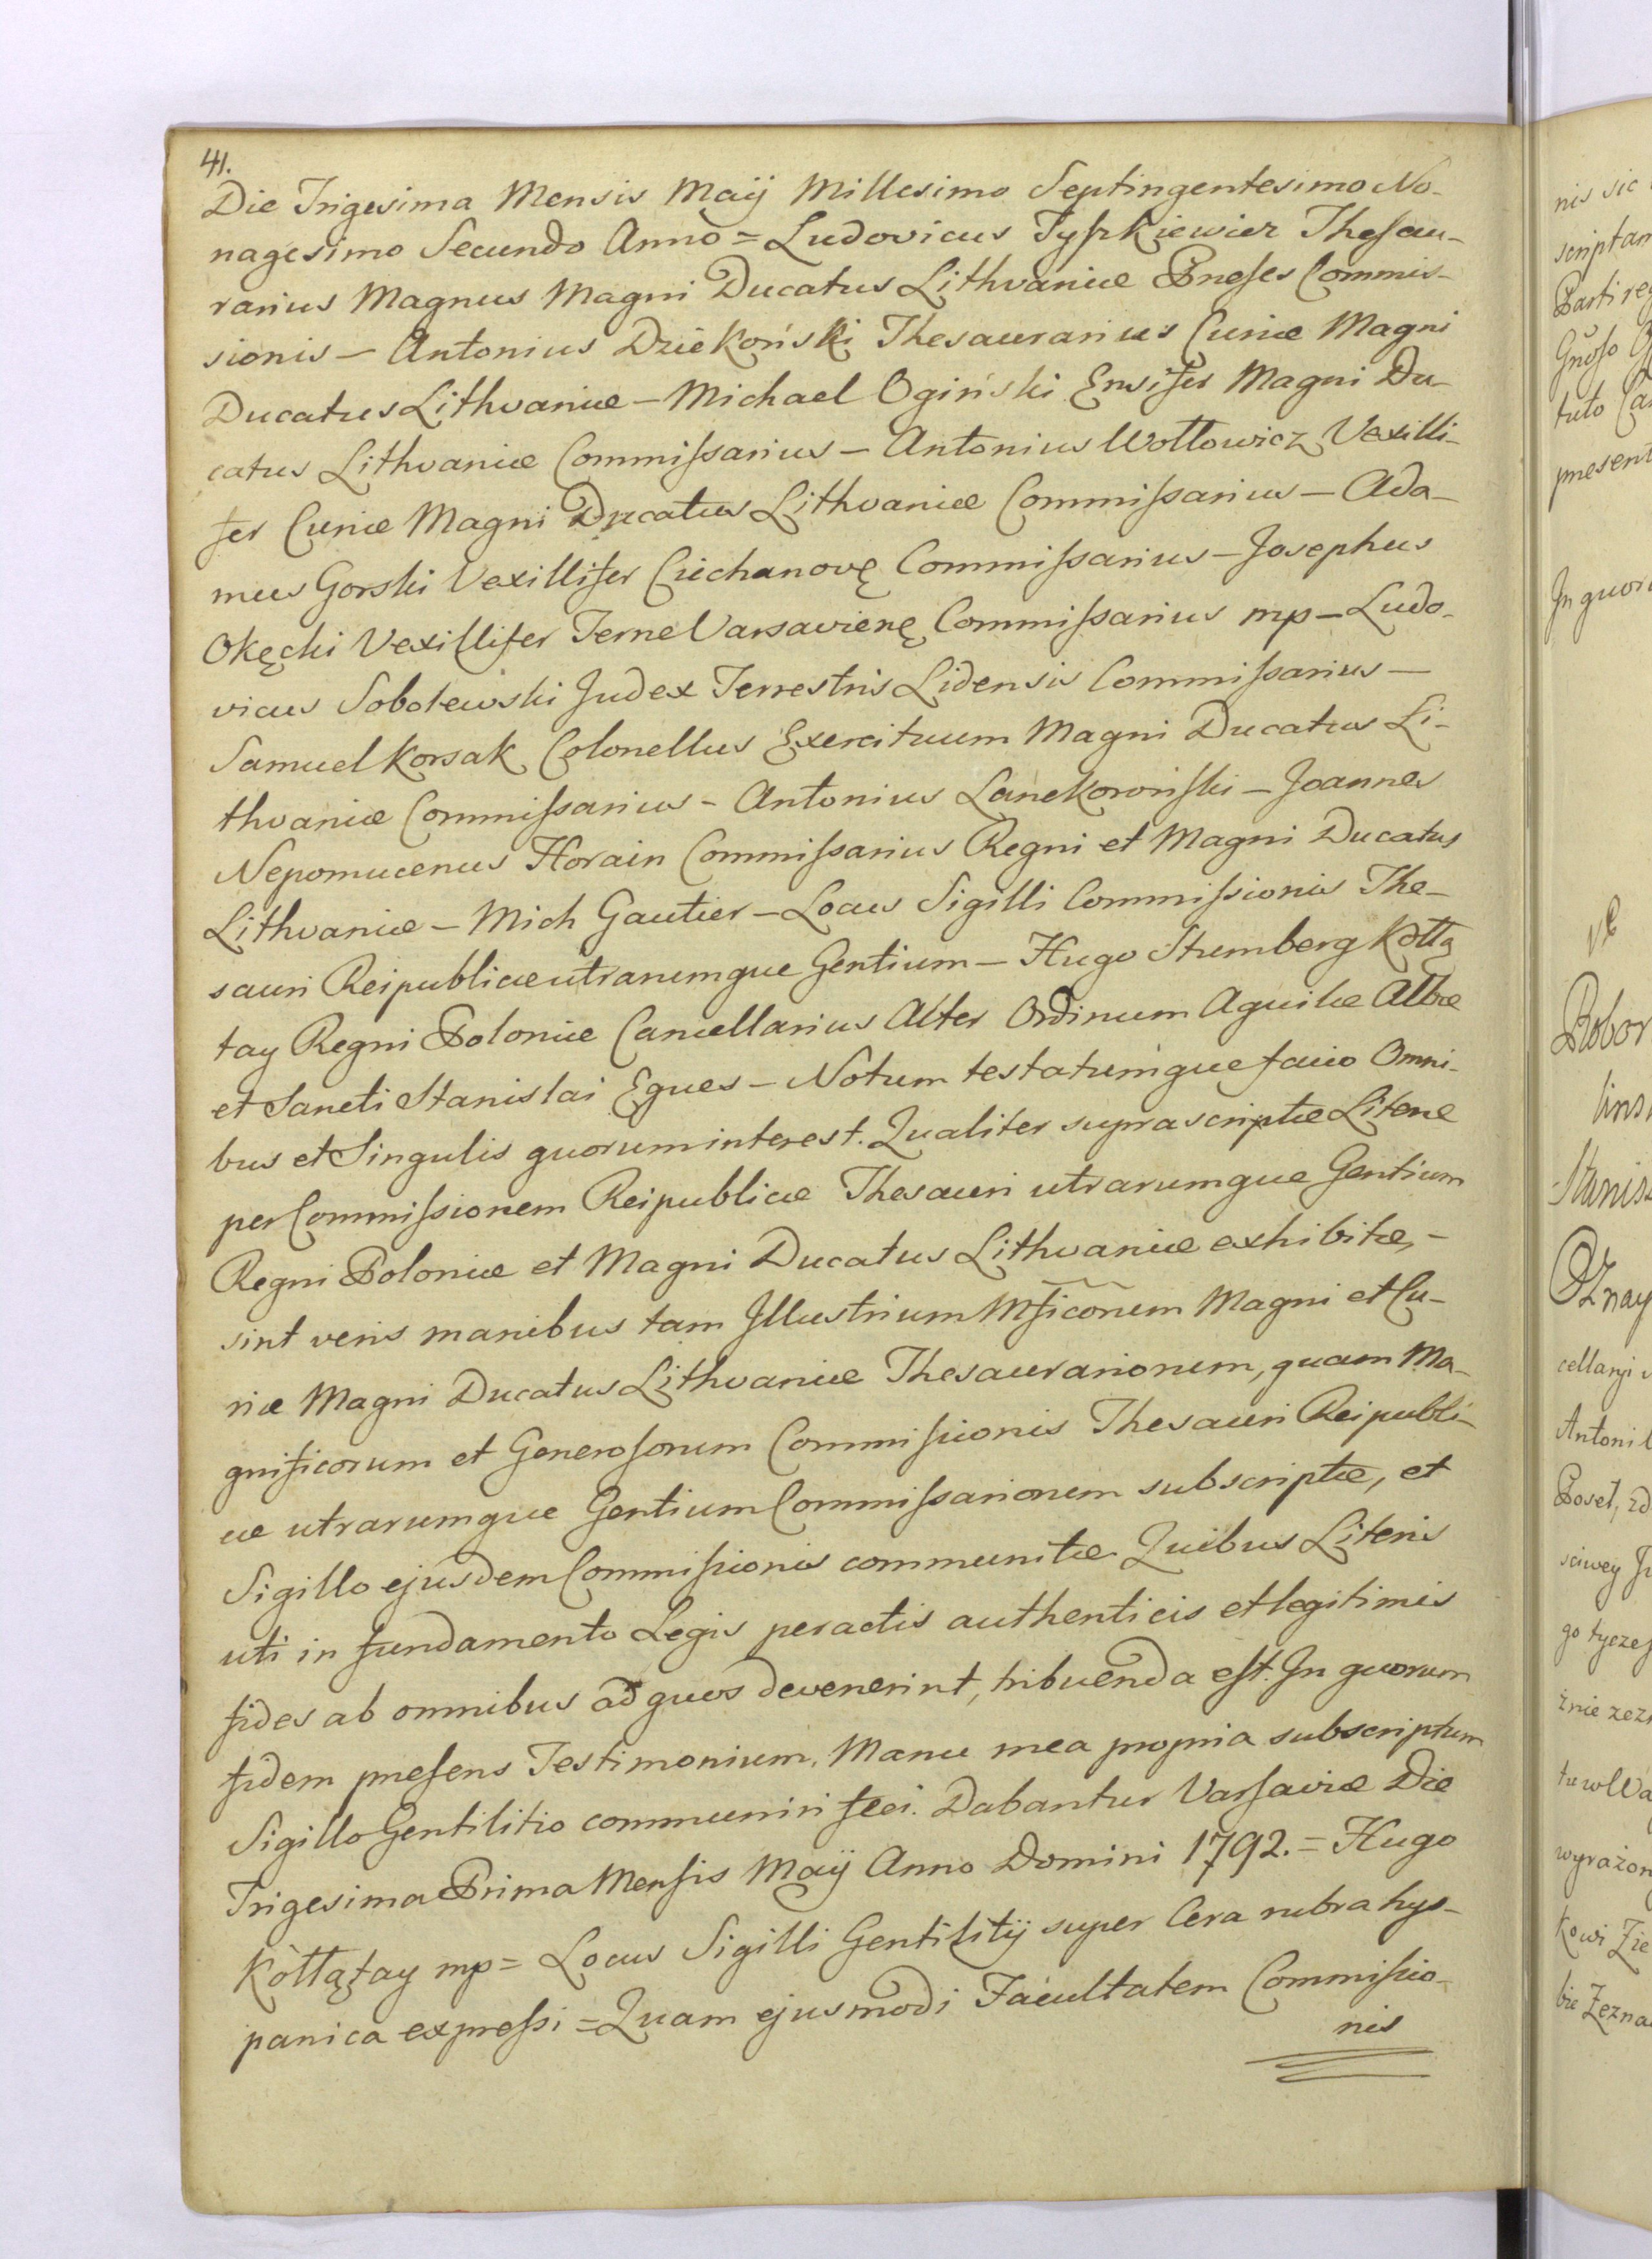 41.
Die Trigesima Mensis Maÿ Millesimo Septingentesimo No-
nagesimo Secundo Anno = Ludovicus Tyszkiewicz Thesau-
rarius Magnus Magni Ducatus Lithvaniæ Præses Commis-
sionis — Antonius Dziekoński Thesaurarius Curiæ Magni
Ducatus Lithvaniæ — Michael Ogiński Ensifer Magni Du-
catus Lithvaniæ Commissarius — Antonius Wołłowicz Vexilli-
fer Curiæ Magni Ducatus Lithvaniæ Commissarius — Ada-
mus Gorski Vexillifer Ciechanovę Commissarius — Josephus
Okęcki Vexillifer Terræ Varsavienę Commissarius mp — Ludo-
vicus Sobolewski Judex Terrestris Lidensis Commissarius —
Samuel Korsak Colonellus Exercituum Magni Ducatus Li-
thvaniæ Commissarius - Antonius Lanckoroński — Joannes
Nepomucenus Horain Commissarius Regni et Magni Ducatus
Lithvaniæ — Mich Gautier — Locus Sigilli Commissionis The-
sauri Reipublicæ utrarumque Gentium — Hugo Stumberg Kołłą
tay Regni Poloniæ Cancellarius Alter Ordinum Aquilæ Albæ
et Sancti Stanislai Eques — Notum testatumque facio Omni-
bus et Singulis quorum interest. Qualiter supra scriptæ Literæ
per Commissionem Reipublicæ Thesauri utrarumque Gentium
Regni Poloniæ et Magni Ducatus Lithvaniæ exhibitæ, -
sint veris manibus tam Illustrium Mficorum Magni et Cu-
riæ Magni Ducatus Lithvaniæ Thesaurariorum, quam Ma-
gnificorum et Generosorum Commissionis Thesauri Reipubli-
cæ utrarumque Gentium Commissariorum subscriptæ, et
Sigillo ejusdem Commissionis communitæ Quibus Literis
uti in fundamento Legis peractis authenticis et legitimis
fides ab omnibus ad quos devenerint, tribuenda est. In quorum
fidem præsens Testimonium, Manu mea propria subscriptum
Sigillo Gentilitio communiri feci. Dabantur Varsaviæ Die
Trigesima Prima Mensis Maÿ Anno Domini 1792. = Hugo
Kołłątay mp = Locus Sigilli Gentilitÿ super Cera rubra hys-
panica expressi = Quam ejusmodi Facultatem Commissio-
nis
nis sic
Parti
tuto
Robor
Oznay
Antoni
wyrażon
kowi